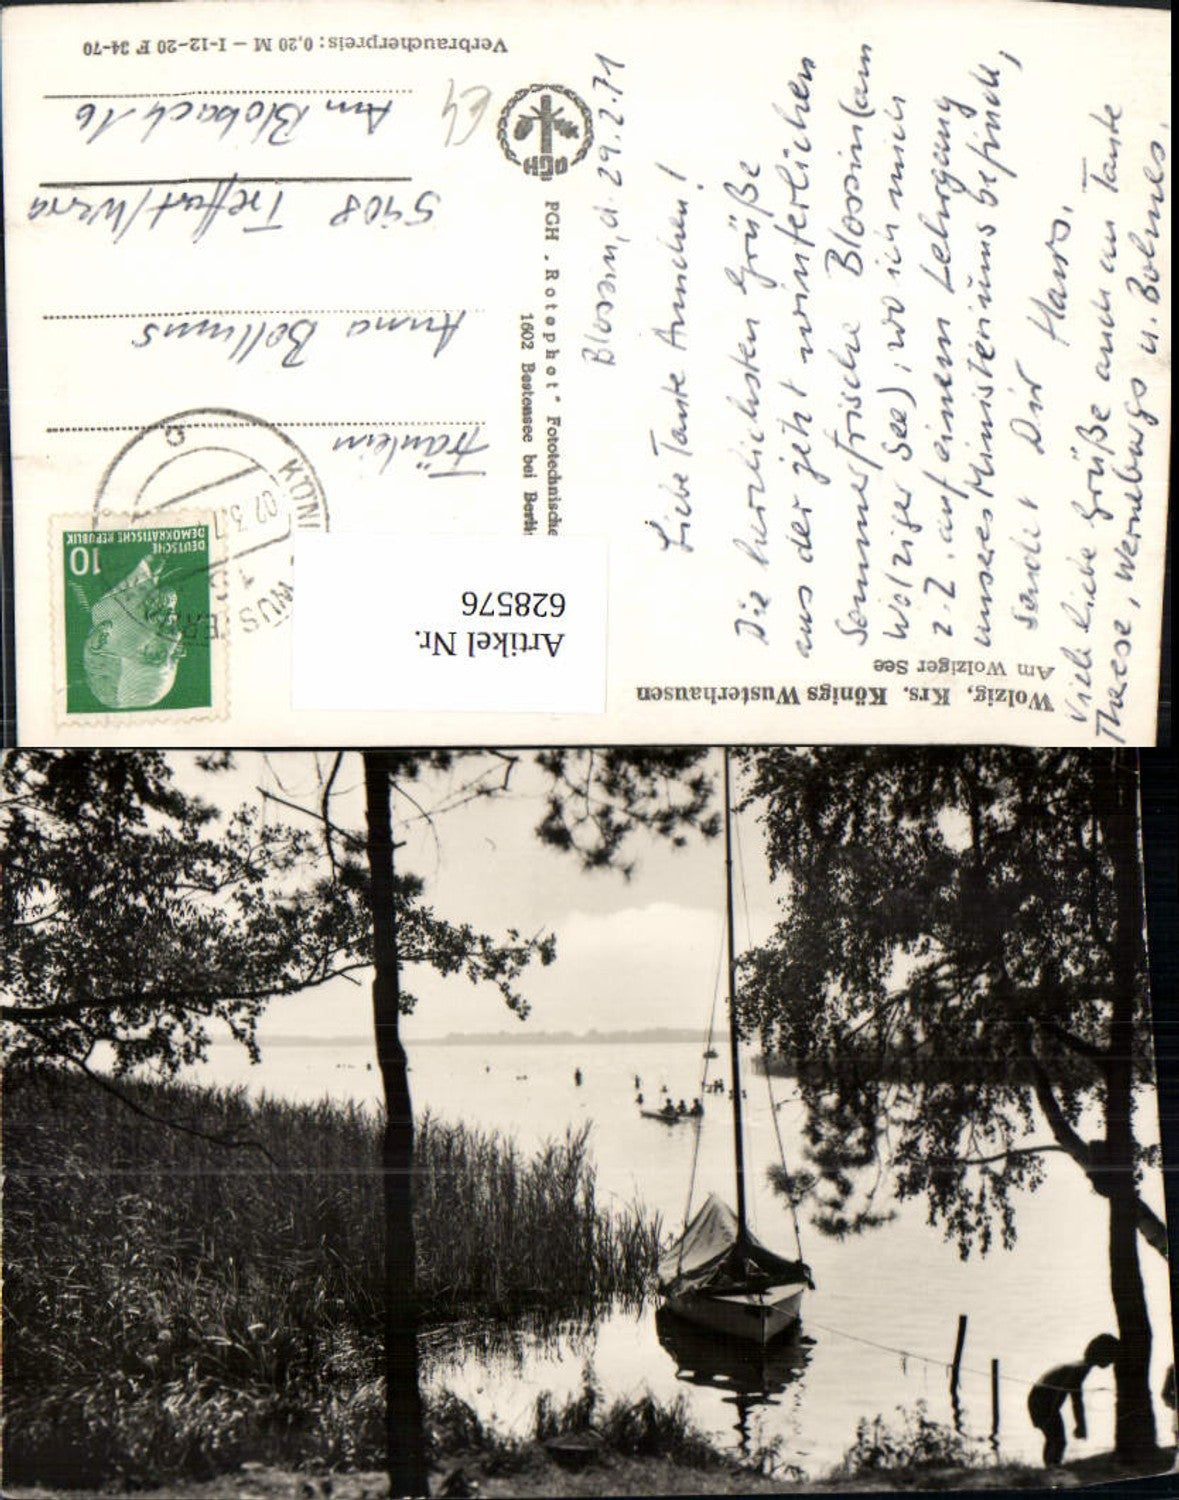 Wolzig, Krs. Königs Wusterhausen
Am Wolziger See
Blossin, d. 29.2.71
Liebe Tante Annchen!
Die herzlichsten Grüße
aus der jetzt winterlichen
Sommerfrische Blossin (am
Wolziger See), wo ich mich
z. Z. auf einem Lehrgang
unseres Ministeriums befinde,
sendet Dir Hans.
Viele liebe Grüße auch an Tante
Therese, Werneburgs u. Bolmes.
PGH „Rotophot" Fototechnische
1602 Bestensee bei Berlin
PGH
Artikel Nr.
628576
DEUTSCHE
DEMOKRATISCHE REPUBLIK
10
Fräulein
Anna Bollmus
5908 Treffurt/Werra
Am Blobach 16
Verbraucherpreis: 0,20 M – I-12-20 F 34-70